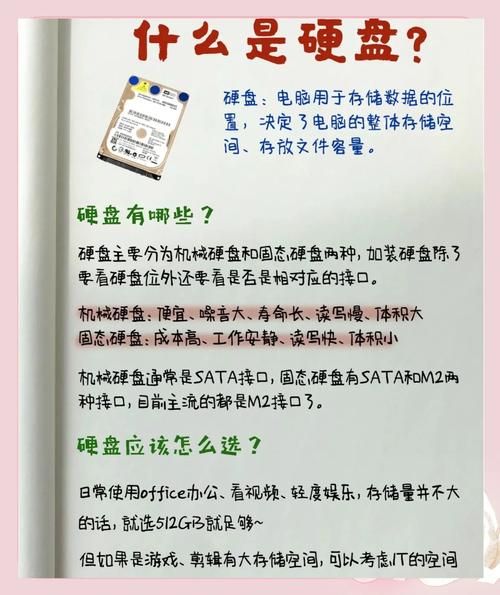 什么是硬盘?
硬盘:电脑用于存储数据的位
置,决定了电脑的整体存储空
间、存放文件容量。
硬盘有哪些?
硬盘主要分为机械硬盘和固态硬盘两种,加装硬盘除了
要看硬盘位外还要看是否是相对应的接口。
机械硬盘:便宜、噪音大、寿命长、读写慢、体积大
固态硬盘:成本高、工作安静、读写快、体积小
机械硬盘通常是SATA接口,固态硬盘有SATA和M2两
种接口,目前主流的都是M2接口了。
硬盘应该怎么选?
日常使用office办公、看视频、轻度娱乐,存储量并不大
的话,就选512GB就足够~
但如果是游戏、剪辑有大存储空间,可以考虑1T的空间